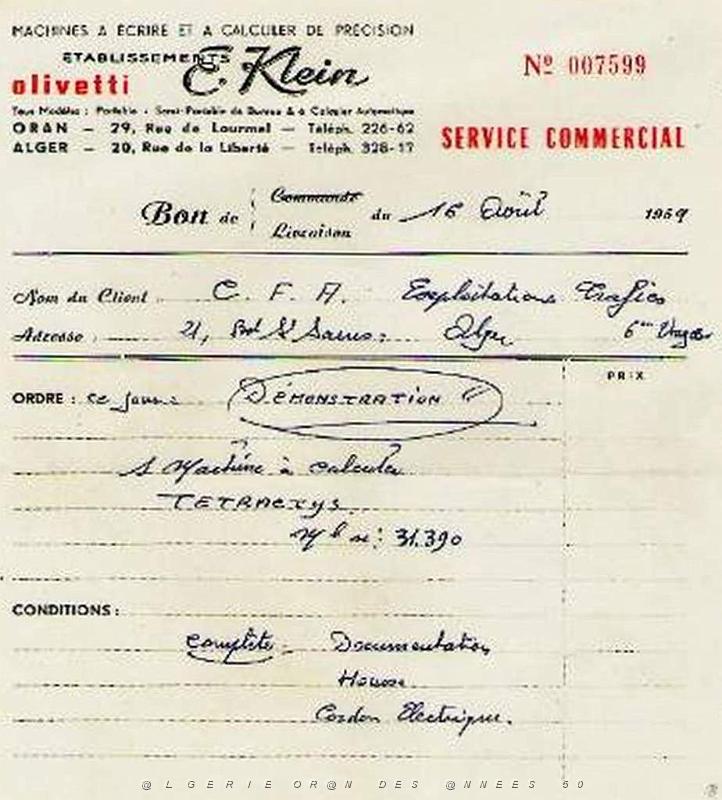 MACHINES A ÉCRIRE ET A CALCULER DE PRÉCISION
ETABLISSEMENTS
olivetti E. Klein
Nº 007599
Tous Modèles : Portable - Semi-Portable de Bureau & à Calculer Automatique
ORAN — 29, Rue de Lourmel — Téléph. 226-62
ALGER — 20, Rue de la Liberté — Téléph. 328-17
SERVICE COMMERCIAL
Bon de Commande Livraison du 16 Août 1959
Nom du Client C. F. A. Exploitation Trafics
Adresse : 21, Bd St Saens : Alger 6ème
PRIX
ORDRE : ce jour : DÉMONSTRATION "
1 Machine à calculer
TETRACTYS
31.390
CONDITIONS :
Complète : Documentation
Housse
Cordon Electrique.
@ L G E R I E O R @ N D E S @ N N E E S 5 0